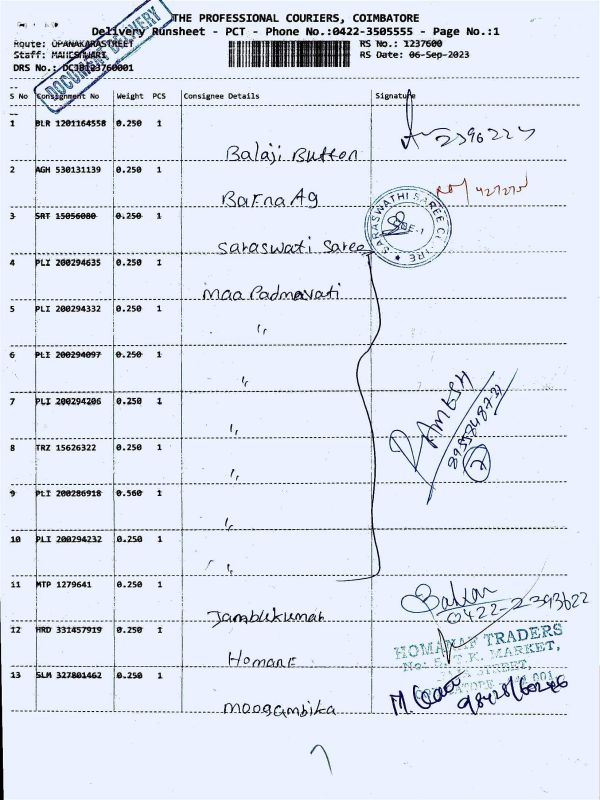 THE PROFESSIONAL COURIERS, COIMBATORE
Delivery Runsheet - PCT - Phone No.:0422-3505555 - Page No.:1
Route: OPANAKARASTREET
RS No.: 1237600
Staff: MAHESHWARI
RS Date: 06-Sep-2023
DRS No.: DC38123760001
DOCUMENT DELIVERY
S No Consignment No Weight PCS Consignee Details Signature
1 BLR 1201164558 0.250 1
Balaji Button
2396227
2 AGH 530131139 0.250 1
Barna Ag
3 SRT 15056080 0.250 1
Saraswati Saree
SARASWATHI SAREE CENTRE
4 PLI 200294635 0.250 1
maa Padmavati
5 PLI 200294332 0.250 1
"
6 PLI 200294097 0.250 1
"
7 PLI 200294206 0.250 1
"
RAMESH
8 TRZ 15626322 0.250 1
"
9 PLI 200286918 0.560 1
"
10 PLI 200294232 0.250 1
"
11 MTP 1279641 0.250 1
Jambukumar
0422-2393622
12 HRD 331457919 0.250 1
Homane
TRADERS
MARKET,
STREET,
13 SLM 327801462 0.250 1
moogambika